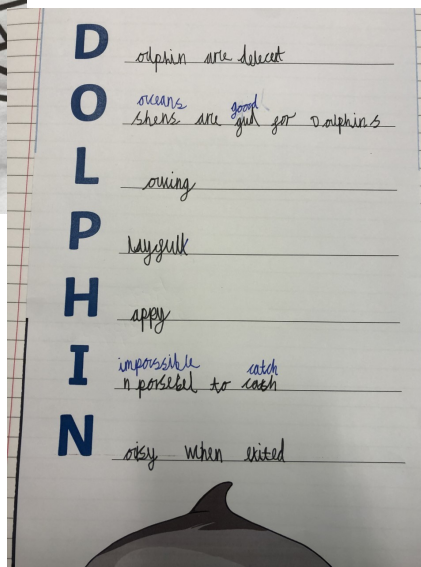 D olphin are delecat
oceans good
O shens are gud for Dolphins
L oving
P laygull
H appy
impossible catch
I n porsebel to catsh
N oisy when exited